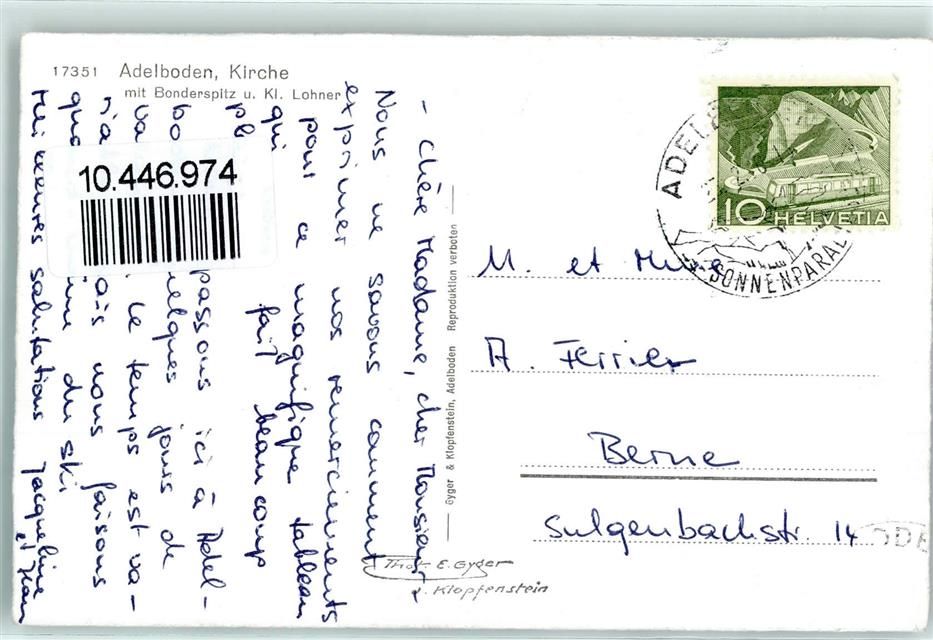 17351 Adelboden, Kirche
mit Bonderspitz u. Kl. Lohner
10.446.974
- Chère Madame, cher Monsieur -
Nous ne savons comment
exprimer nos remerciements
pour ce magnifique tableau
qui fait beaucoup
pl
passons ici à Adel-
bo quelques jours de
va Le temps est va-
ria ais nous faisons
qua du ski
Meilleures salutations Jacqueline
et Jean
Gyger & Klopfenstein, Adelboden Reproduktion verboten
Phot. E. Gyger
u. Klopfenstein
ADELB
SONNENPARAD
10 HELVETIA
M. et Mme
A. Ferrier
Berne
Sulgenbachstr. 14
ODE